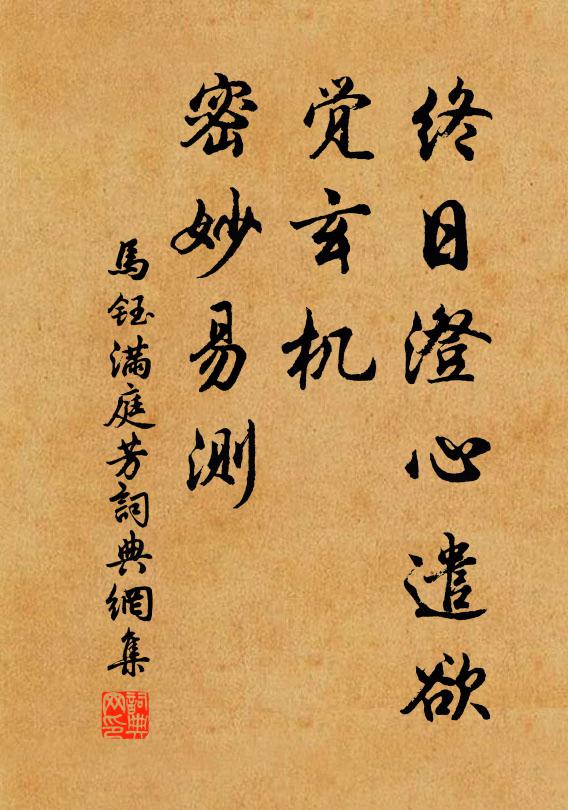 终日澄心遣欲
觉玄机
密妙易测
馬钰滿庭芳詞典網集
詞典网印